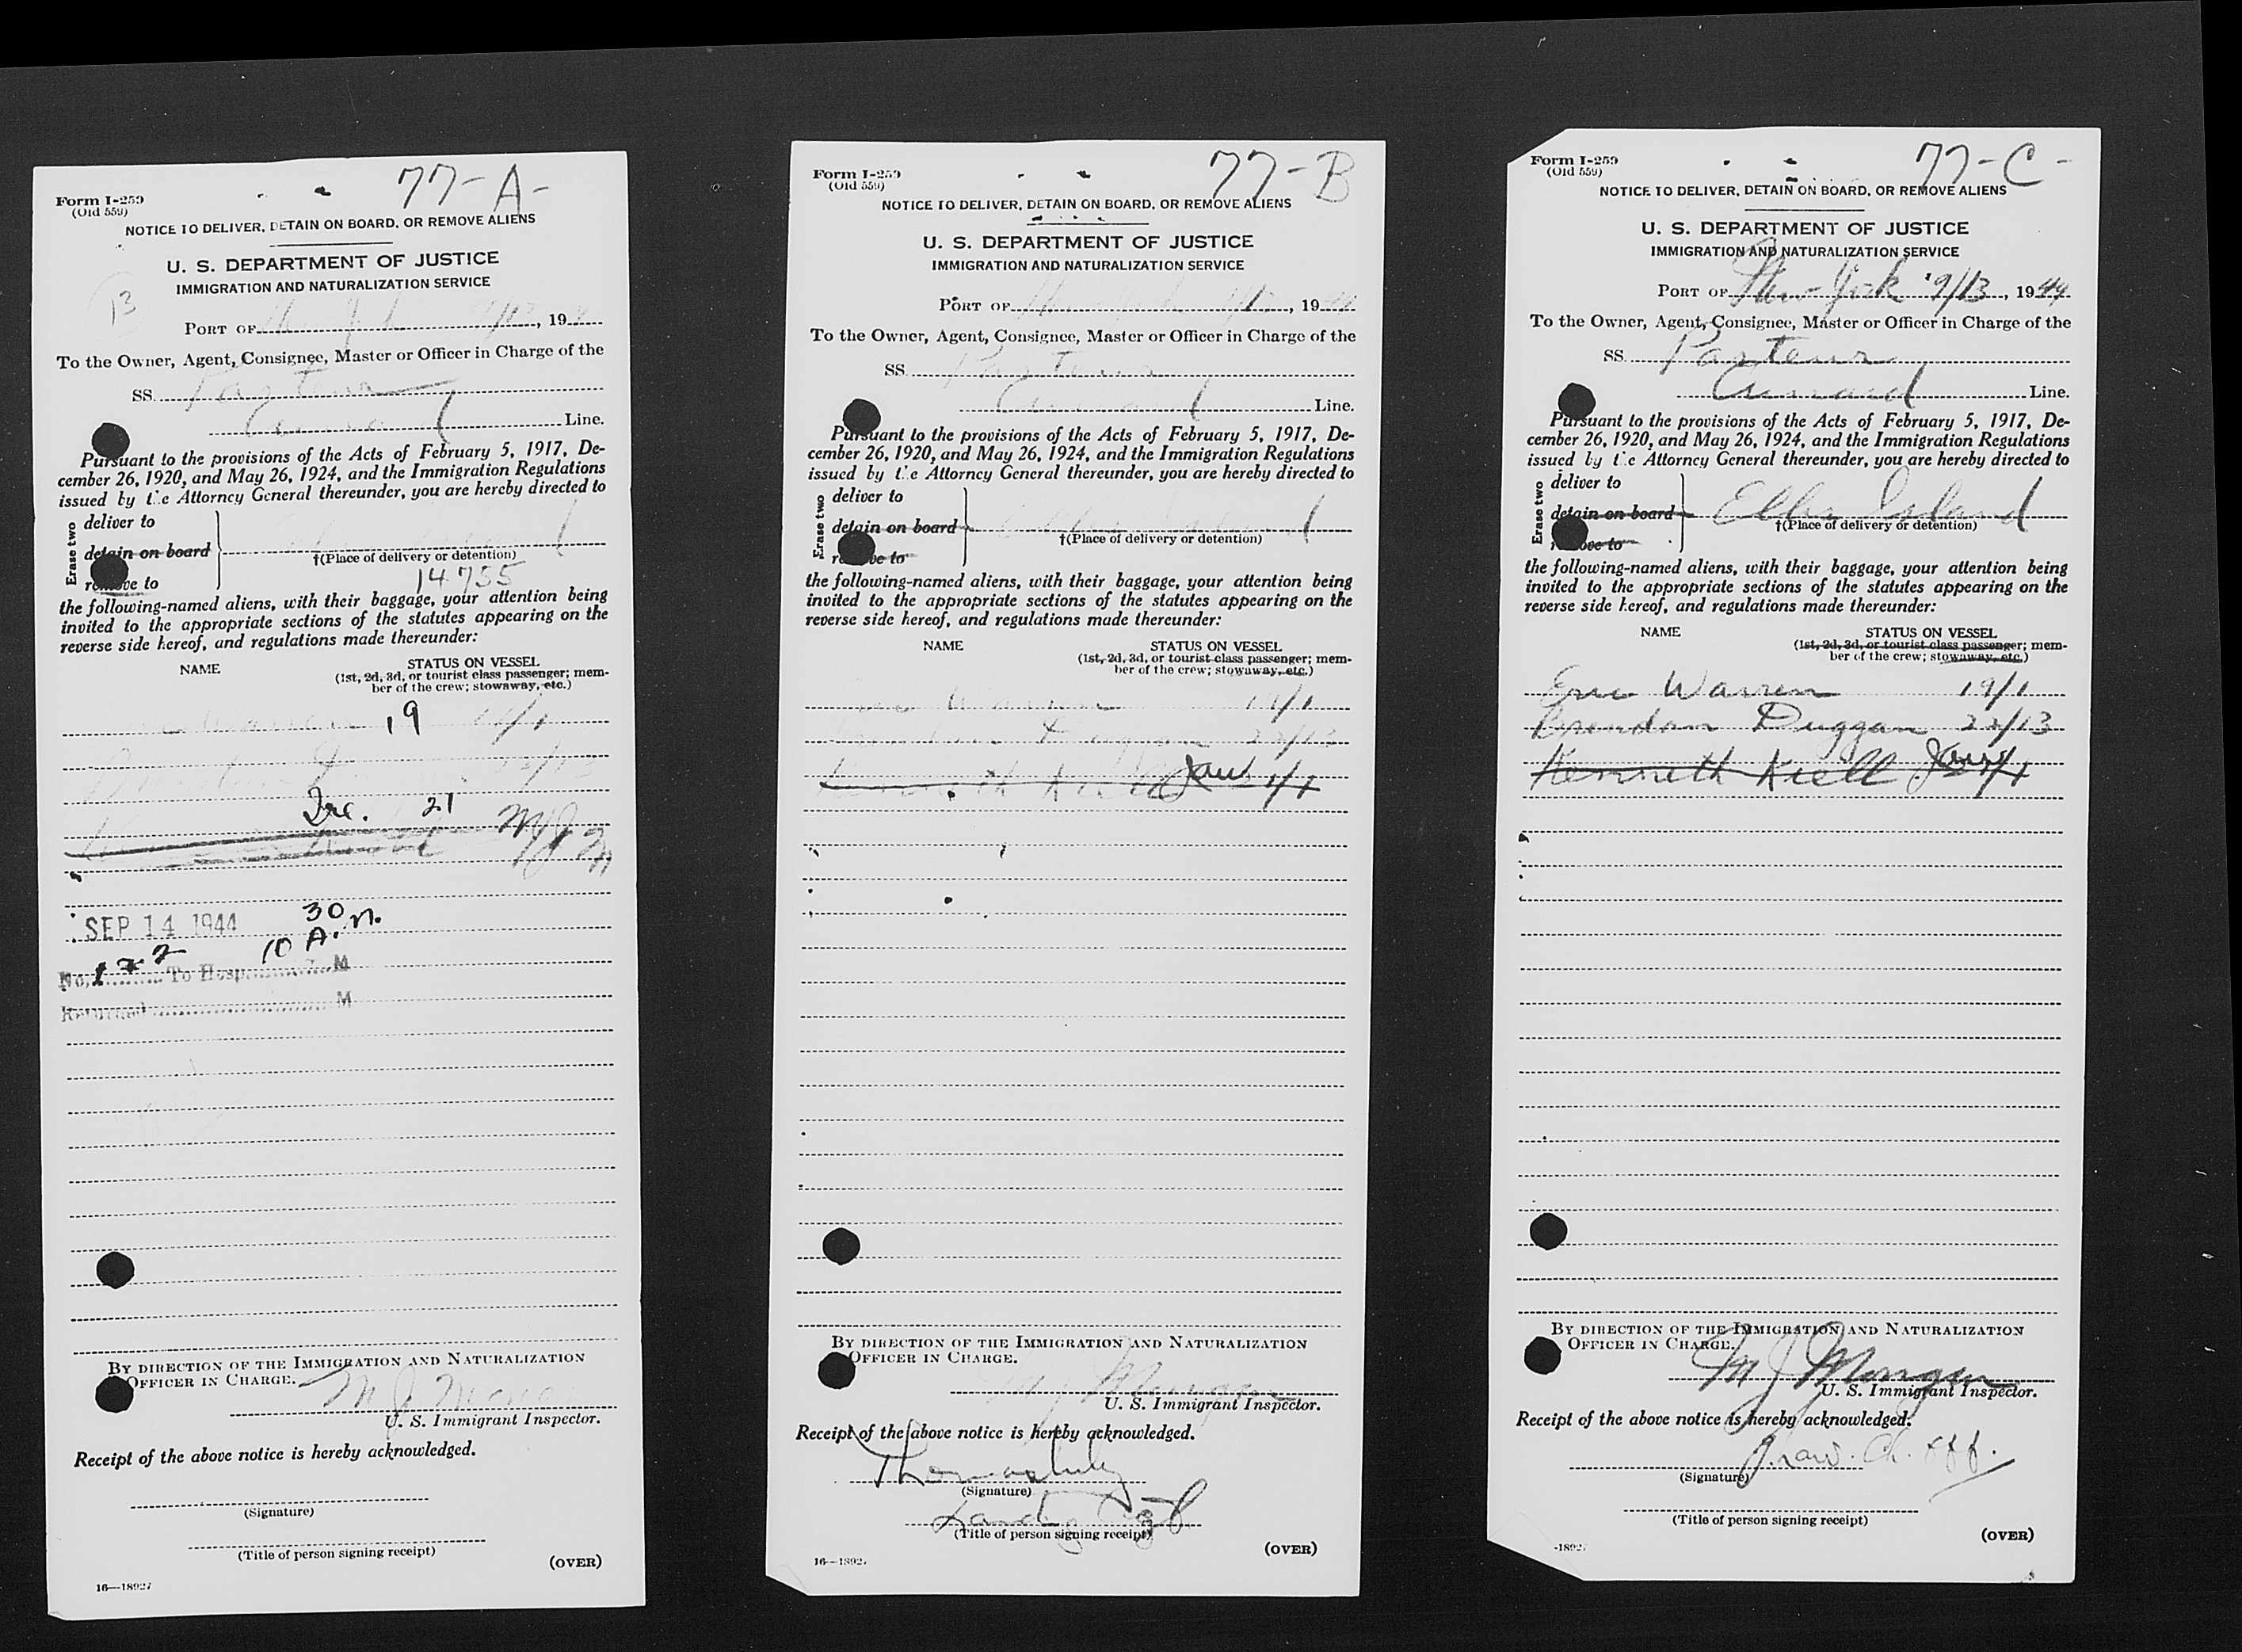 77-A-
Form I-259
(Old 559)
NOTICE TO DELIVER, DETAIN ON BOARD, OR REMOVE ALIENS
U. S. DEPARTMENT OF JUSTICE
IMMIGRATION AND NATURALIZATION SERVICE
13
PORT OF 9/13, 19
To the Owner, Agent, Consignee, Master or Officer in Charge of the
SS. Pasteur
Cunard Line.
Pursuant to the provisions of the Acts of February 5, 1917, De-
cember 26, 1920, and May 26, 1924, and the Immigration Regulations
issued by the Attorney General thereunder, you are hereby directed to
Erase two
deliver to
detain on board
†(Place of delivery or detention)
remove to
14755
the following-named aliens, with their baggage, your attention being
invited to the appropriate sections of the statutes appearing on the
reverse side hereof, and regulations made thereunder:
NAME STATUS ON VESSEL
(1st, 2d, 3d, or tourist class passenger; mem-
ber of the crew; stowaway, etc.)
Warren 19
Dec. 21
SEP 14 1944 30
10 A.M.
No. 177 To Hosp. M
Returned M
BY DIRECTION OF THE IMMIGRATION AND NATURALIZATION
OFFICER IN CHARGE.
M J
U. S. Immigrant Inspector.
Receipt of the above notice is hereby acknowledged.
(Signature)
(Title of person signing receipt)
(OVER)
16—18927
77-B
Form I-259
(Old 559)
NOTICE TO DELIVER, DETAIN ON BOARD, OR REMOVE ALIENS
U. S. DEPARTMENT OF JUSTICE
IMMIGRATION AND NATURALIZATION SERVICE
PORT OF , 19
To the Owner, Agent, Consignee, Master or Officer in Charge of the
SS. Pasteur
Cunard Line.
Pursuant to the provisions of the Acts of February 5, 1917, De-
cember 26, 1920, and May 26, 1924, and the Immigration Regulations
issued by the Attorney General thereunder, you are hereby directed to
Erase two
deliver to
detain on board
†(Place of delivery or detention)
remove to
the following-named aliens, with their baggage, your attention being
invited to the appropriate sections of the statutes appearing on the
reverse side hereof, and regulations made thereunder:
NAME STATUS ON VESSEL
(1st, 2d, 3d, or tourist class passenger; mem-
ber of the crew; stowaway, etc.)
Warren 19/1
22/13
BY DIRECTION OF THE IMMIGRATION AND NATURALIZATION
OFFICER IN CHARGE.
M J Morgan
U. S. Immigrant Inspector.
Receipt of the above notice is hereby acknowledged.
(Signature)
(Title of person signing receipt)
(OVER)
77-C-
Form I-259
(Old 559)
NOTICE TO DELIVER, DETAIN ON BOARD, OR REMOVE ALIENS
U. S. DEPARTMENT OF JUSTICE
IMMIGRATION AND NATURALIZATION SERVICE
PORT OF New York 9/13, 1944
To the Owner, Agent, Consignee, Master or Officer in Charge of the
SS. Pasteur
Cunard Line.
Pursuant to the provisions of the Acts of February 5, 1917, De-
cember 26, 1920, and May 26, 1924, and the Immigration Regulations
issued by the Attorney General thereunder, you are hereby directed to
Erase two
deliver to
detain on board
Ellis Island
†(Place of delivery or detention)
remove to
the following-named aliens, with their baggage, your attention being
invited to the appropriate sections of the statutes appearing on the
reverse side hereof, and regulations made thereunder:
NAME STATUS ON VESSEL
(1st, 2d, 3d, or tourist class passenger; mem-
ber of the crew; stowaway, etc.)
Eric Warren 19/1
Brendan Duggan 22/13
Kenneth Krell
BY DIRECTION OF THE IMMIGRATION AND NATURALIZATION
OFFICER IN CHARGE.
M J Morgan
U. S. Immigrant Inspector.
Receipt of the above notice is hereby acknowledged.
(Signature)
(Title of person signing receipt)
(OVER)